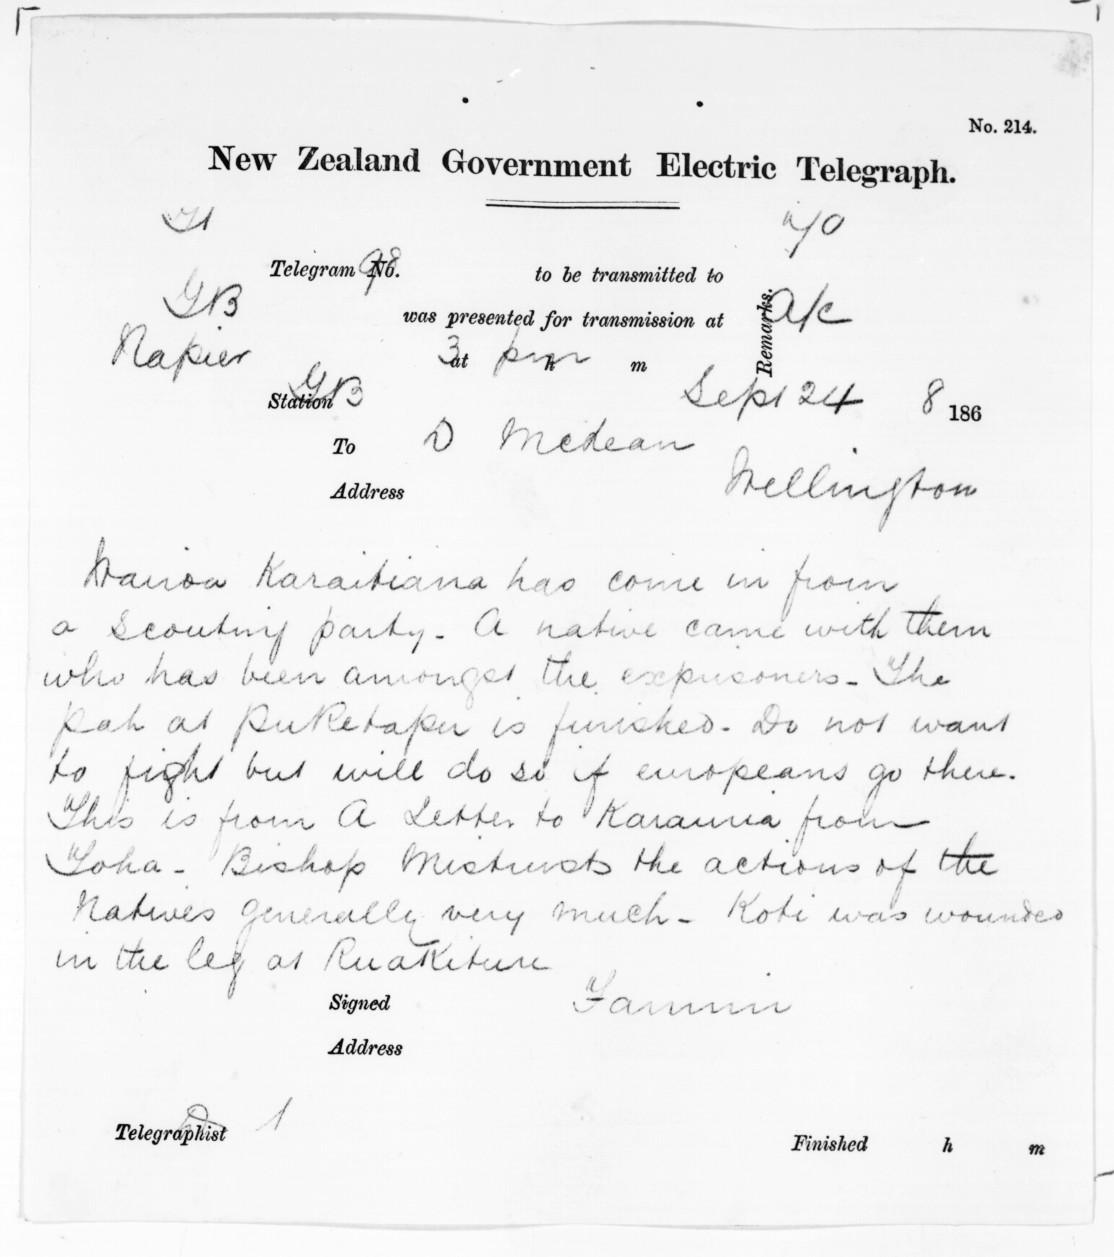 No. 214.
New Zealand Government Electric Telegraph.
70
Telegram No. 98 to be transmitted to
GB
was presented for transmission at
Remarks. A/c
Napier
3 pm at h m
Station GB
Sept 24 8 186
To D McLean
Address Wellington
Wairoa Karaitiana has come in from
a scouting party - A native came with them
who has been amongst the exprisoners - The
pah at Puketapu is finished - Do not want
to fight but will do so if europeans go there.
This is from A Letter to Karauria from
Toha - Bishop Mistrusts the actions of the
Natives generally very much - Koti was wounded
in the leg at Ruakiture
Signed Fannin
Address
Telegraphist
Finished h m